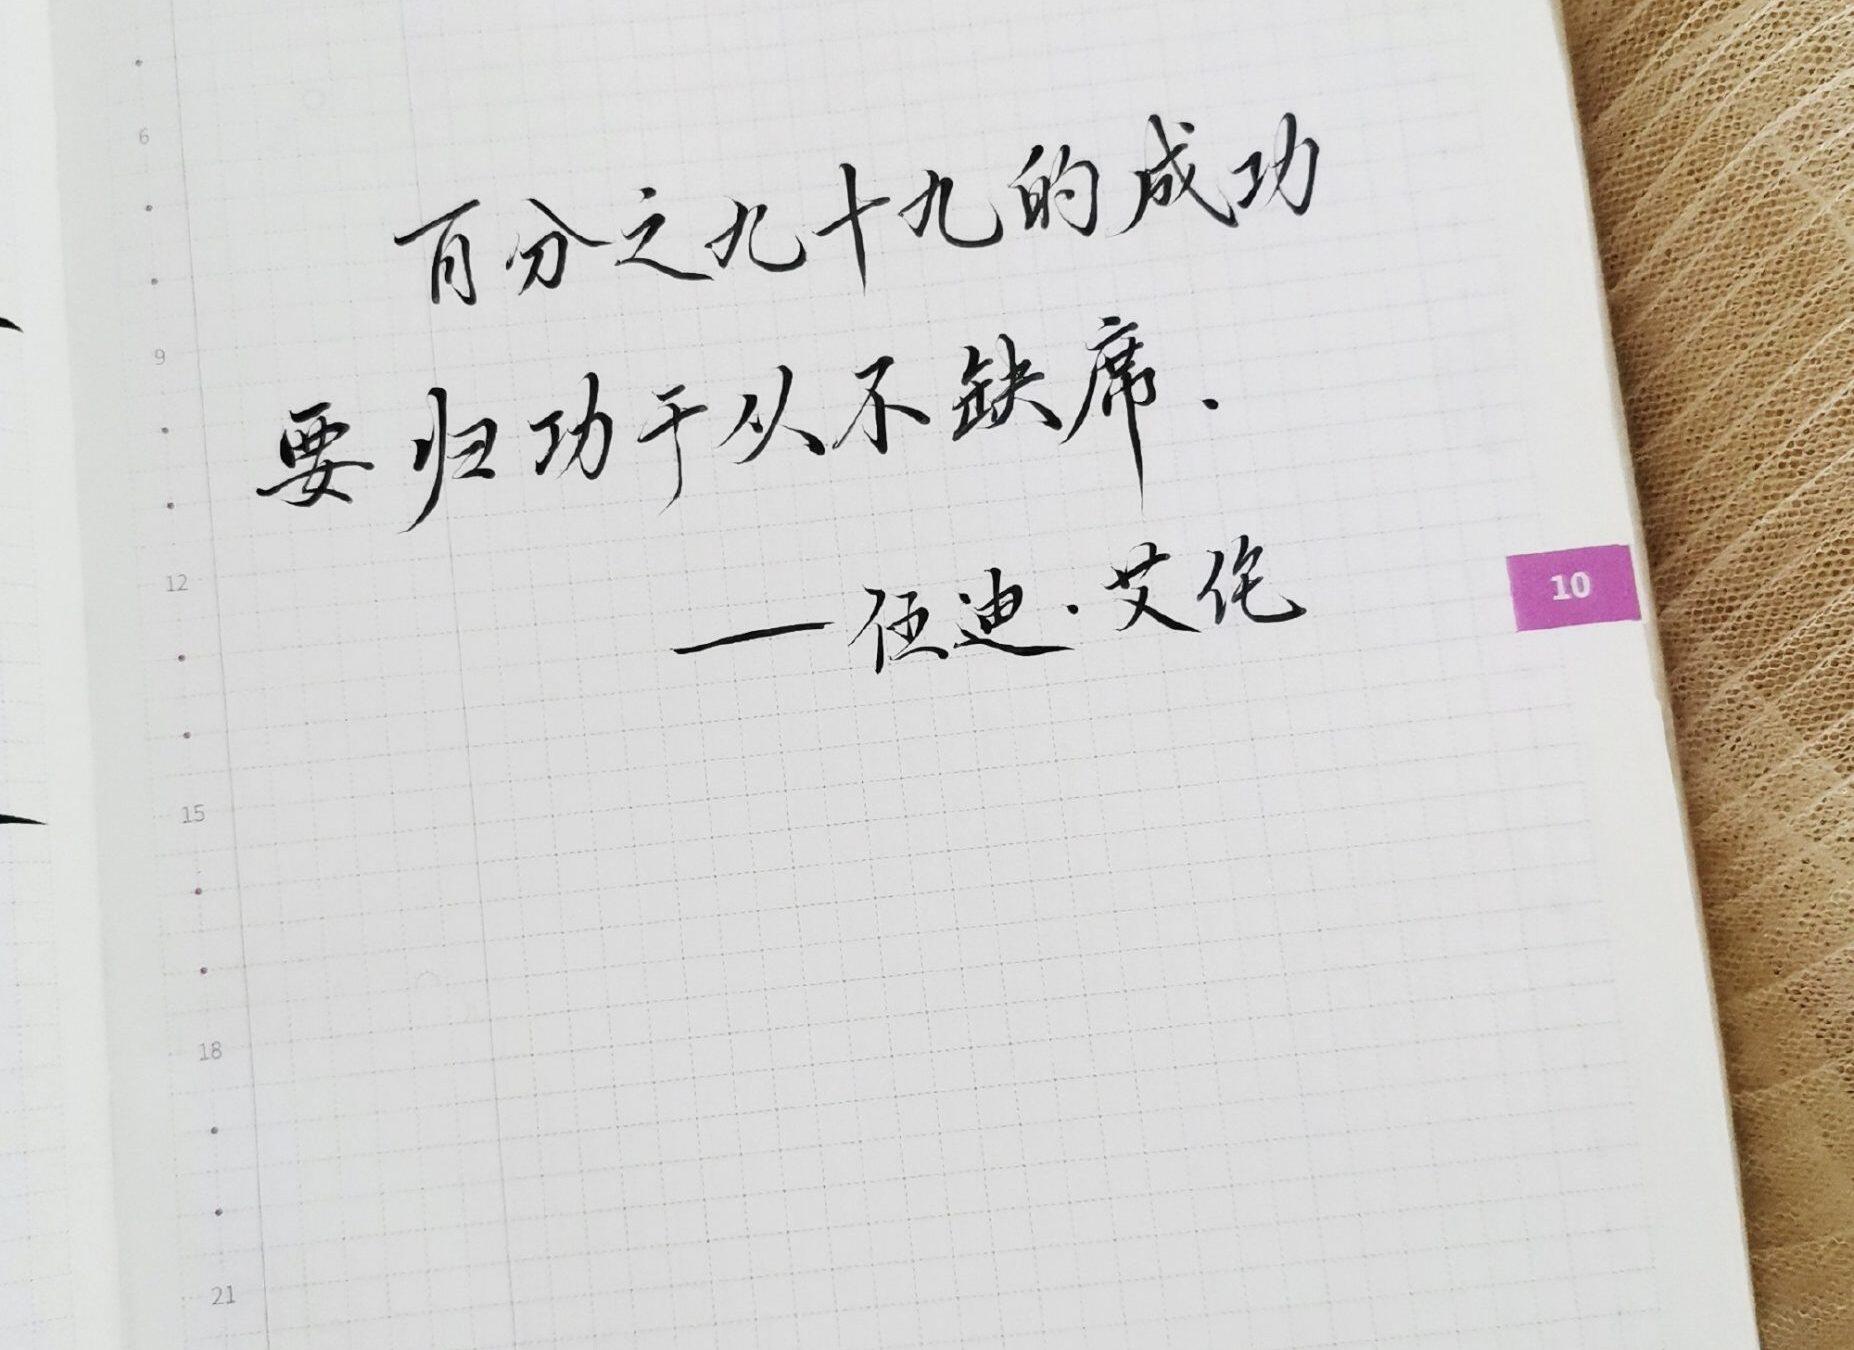 百分之九十九的成功
要归功于从不缺席.
——伍迪·艾伦
6
9
12
15
18
21
10